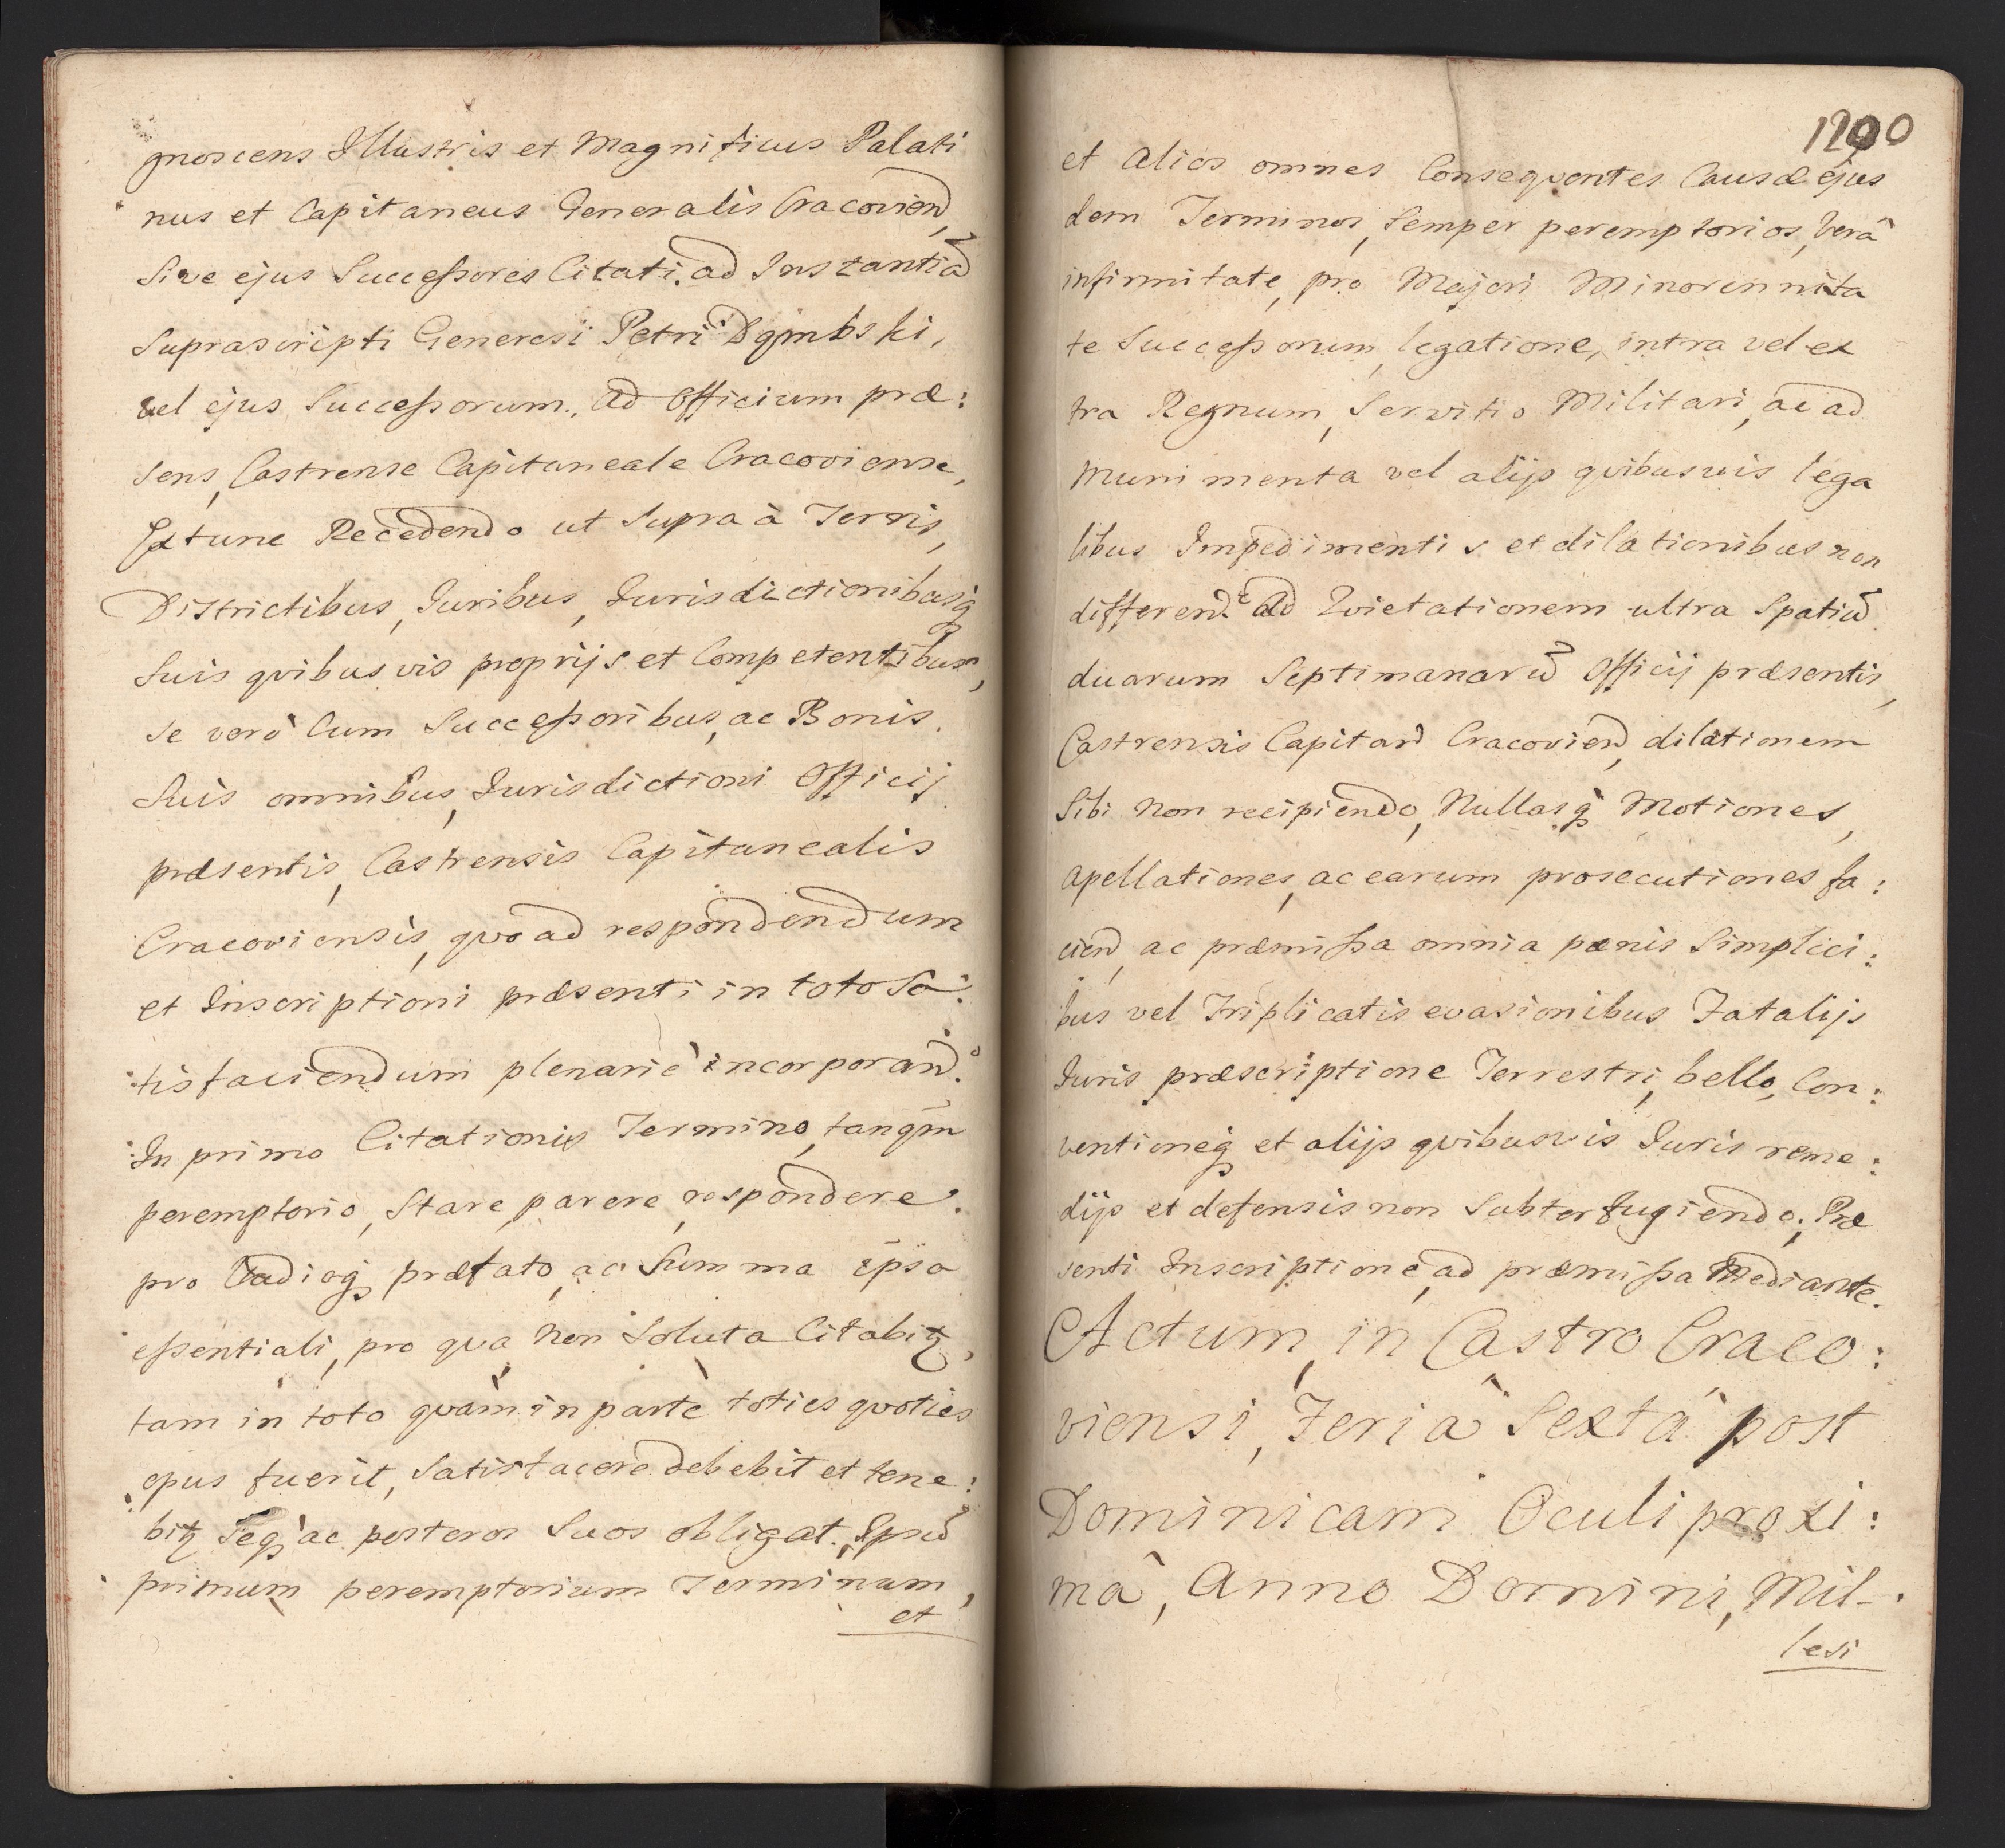 gnoscens Illustris et Magnificus Palati
nus et Capitaneus Generalis Cracovien,
Sive ejus Successores Citati. ad Instantia
Suprascripti Generosi Petri Dąmbski,
vel ejus Successorum. ad officium præ:
sens, Castrense Capitaneale Cracoviense,
Extunc Recedendo ut Supra à Terris,
Districtibus, Juribus, Jurisdictionibusq
Suis qvibusvis proprijs et Competentibus,
se verò Cum Successoribus, ac Bonis.
Suis omnibus, Jurisdictioni Officij
præsentis, Castrensis Capitanealis
Cracoviensis, qvo ad respondendum
et Inscriptioni præsenti in toto Sa:
:tisfaciendum plenariè incorporand.o
:In primo Citationis Termino, tanqm
peremptorio, Stare, parere, respondere.
pro Vadioq, præfato, ac Summa ipsa
essentiali, pro qva, non Soluta Citabitz,
tam in toto qvàm in parte toties qvoties
opus fuerit, Satisfacere debebit et tene:
bitz Seq, ac posteros Suos obligat. Ipsu
primum peremptorium Terminum,
et
1200
et alios omnes Conseqventes Causæ ejus
dem Terminos, Semper peremptorios, Verâ
infirmitate, pro Majori Minorennita
te Successorum, legatione, intra vel ex
tra Regnum, Servitio Militari, ac ad
Munimenta vel alijs qvibusvis lega
libus Impedimentis et dilationibus non
differend. Ad Qvietationem ultra Spatiu
duarum Septimanaru Officij præsentis,
Castrensis Capitan Cracovien, dilationem
Sibi non recipiendo, Nullasq Motiones,
apellationes, ac earum prosecutiones fa:
ciend, ac præmissa omnia pænis Simplici:
bus vel Triplicatis evasionibus Fatalijs
Juris præscriptione Terrestri, bello, Con:
ventioneq et alijs qvibusvis Juris reme:
dijs et defensis non Subterfugiendo; Præ
senti Inscriptione, ad præmissa Mediante.
Actum, in Castro Craco:
viensi, Feria Sexta post
Dominicam Oculi proxi:
mâ, Anno Domini, Mil-
lesi